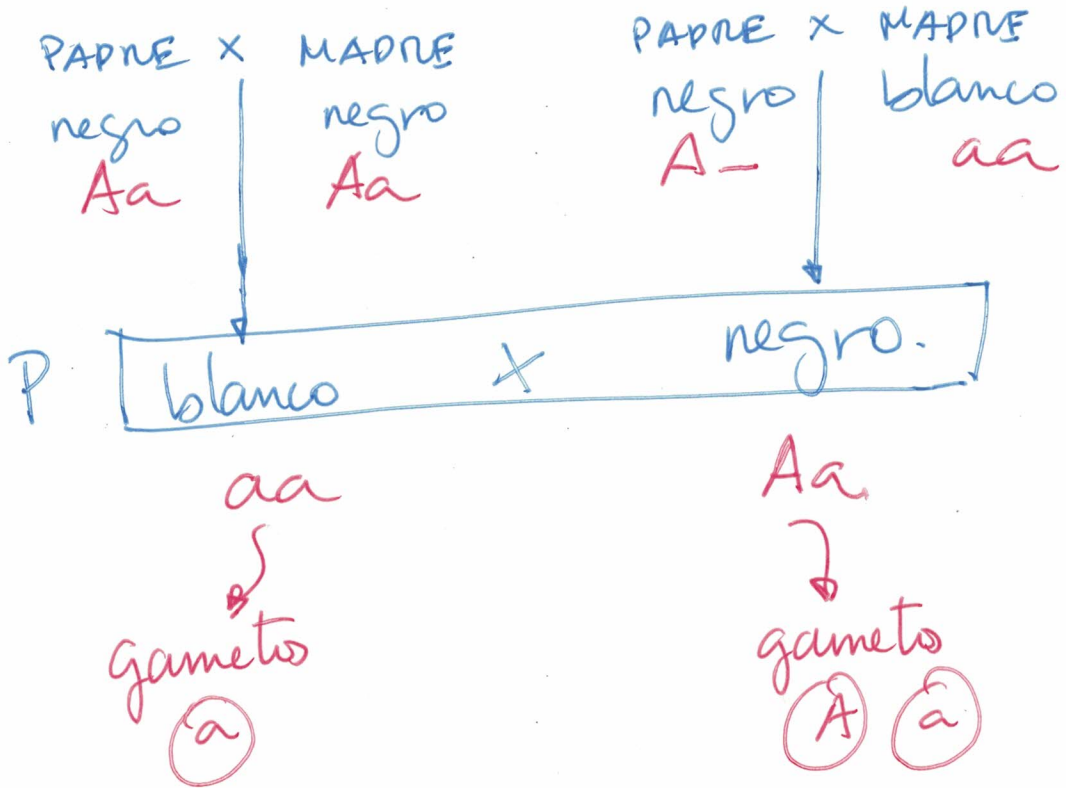 PADRE X MADRE
negro negro
Aa Aa
PADRE X MADRE
negro blanco
A- aa
P blanco X negro.
aa
gametos
a
Aa
gametos
A a